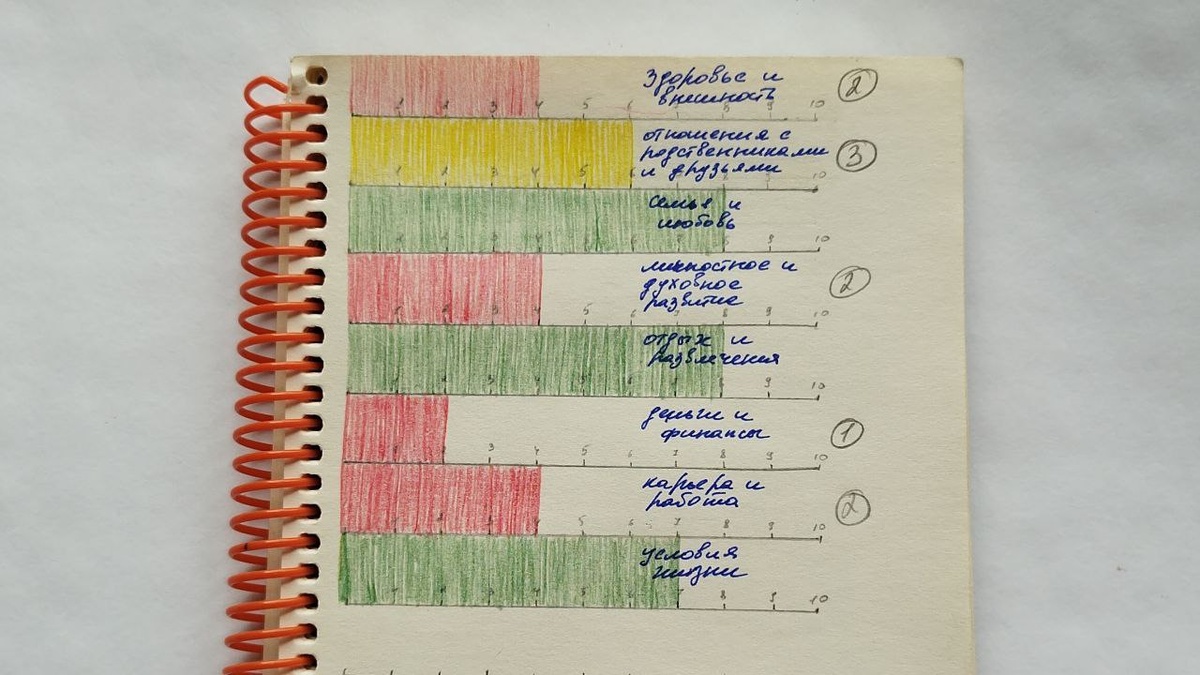 здоровье и
внешность
②
1 2 3 4 5 6 7 8 9 10
отношения с
родственниками
и друзьями
③
1 2 3 4 5 6 10
семья и
любовь
1 2 3 4 5 6 7 8 9 10
личностное и
духовное
развитие
②
1 2 3 4 5 6 7 8 9 10
отдых и
развлечения
1 2 3 4 5 6 7 8 9 10
деньги и
финансы
①
1 2 3 4 5 6 7 8 9 10
карьера и
работа
②
1 2 3 4 5 6 7 8 9 10
условия
жизни
1 2 3 4 5 6 7 8 9 10